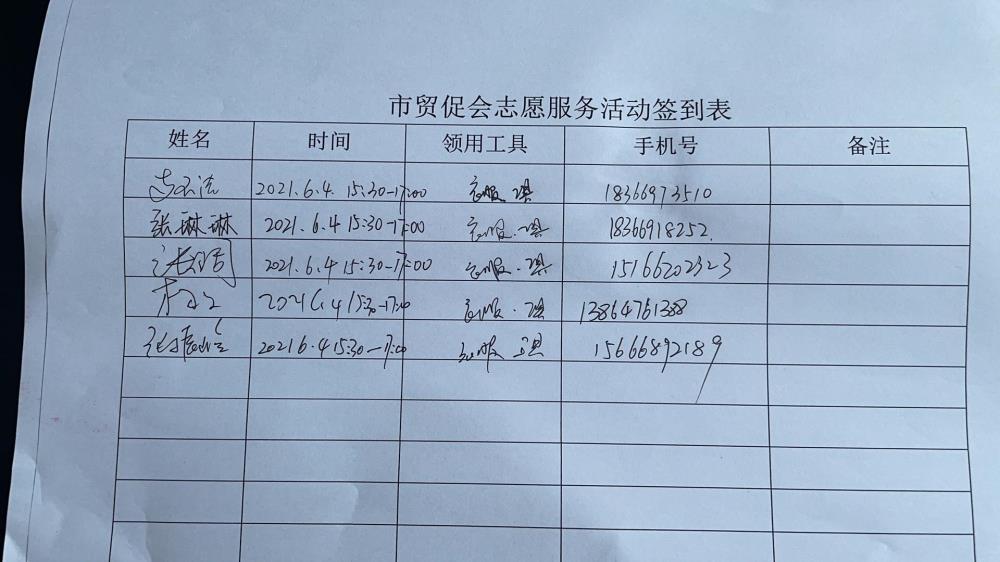 市贸促会志愿服务活动签到表
姓名 时间 领用工具 手机号 备注
2021.6.4 15:30-17:00 衣服.工具 18366973510
张琳琳 2021.6.4 15:30-17:00 衣服.工具 18366918252
2021.6.4 15:30-17:00 衣服.工具 15166202323
2021.6.4 15:30-17:00 衣服.工具 13864761388
2021 6.4 15:30-17:00 衣服 工具 15666892189